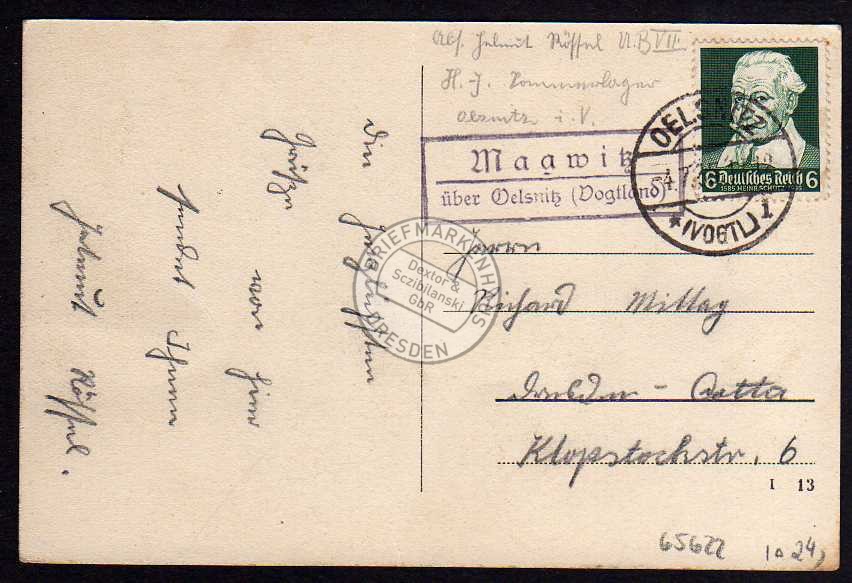 Abs. Helmut Rössel U.B VII.
H.-J. Sommerlager
Oelsnitz i. V.
Magwitz
über Oelsnitz (Vogtland)
OELSNITZ
(VOGTL) 1
6 Deutsches Reich 6
1585 HEINR. SCHÜTZ 1935
Die herzlichsten
Grüße
von hier
sendet Ihnen
Helmut Rössel.
Herrn
Richard Mittag
Dresden - Cotta
Klopstockstr. 6
I 13
65622
BRIEFMARKENHAUS
Dextor &
Sczibilanski
GbR
DRESDEN